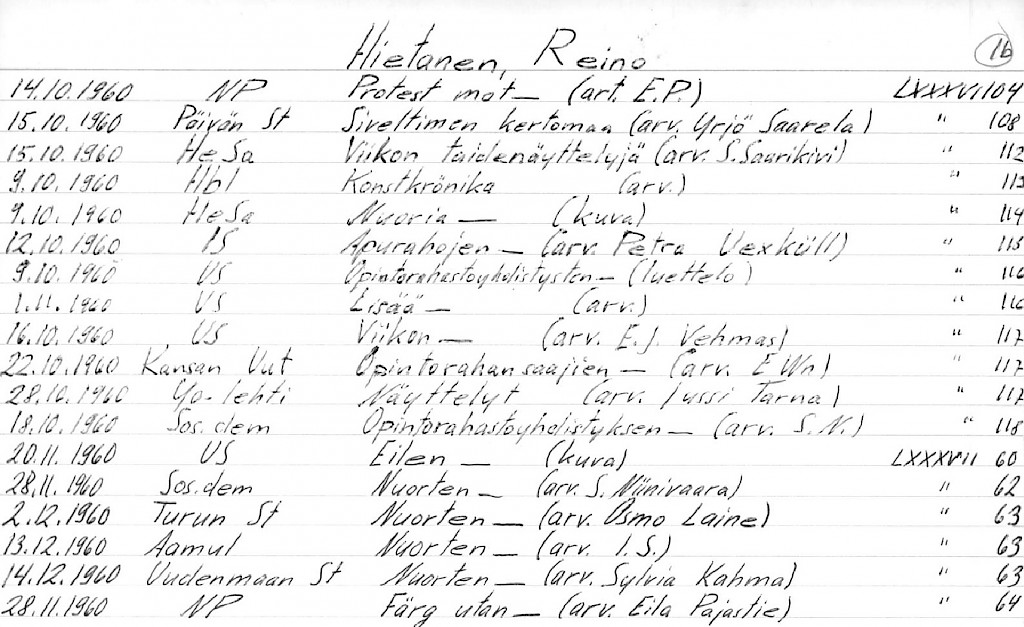 Hietanen, Reino 16
14.10.1960 NP Protest mot — (art. E.P.) LXXXVI 104
15.10.1960 Päivän St Siveltimen kertomaa (arv. Yrjö Saarela) " 108
15.10.1960 HeSa Viikon taidenäyttelyjä (arv. S. Saarikivi) " 112
9.10.1960 Hbl Konstkrönika (arv.) " 113
9.10.1960 HeSa Nuoria — (kuva) " 114
12.10.1960 IS Apurahojen — (arv. Petra Uexküll) " 115
9.10.1960 US Opintorahastoyhdistysten — (luettelo) " 116
1.11.1960 US Lisää — (arv.) " 116
16.10.1960 US Viikon — (arv. E.J. Vehmas) " 117
22.10.1960 Kansan Uut Opintorahansaajien — (arv. E Wn) " 117
28.10.1960 Yo-lehti Näyttelyt (arv. Jussi Tarna) " 117
18.10.1960 Sos.dem Opintorahastoyhdistyksen — (arv. S.N.) " 118
20.11.1960 US Eilen — (kuva) LXXXVII 60
28.11.1960 Sos.dem Nuorten — (arv. S. Niinivaara) " 62
2.12.1960 Turun St Nuorten — (arv. Osmo Laine) " 63
13.12.1960 Aamul Nuorten — (arv. I.S.) " 63
14.12.1960 Uudenmaan St Nuorten — (arv. Sylvia Kahma) " 63
28.11.1960 NP Färg utan — (arv. Eila Pajastie) " 64